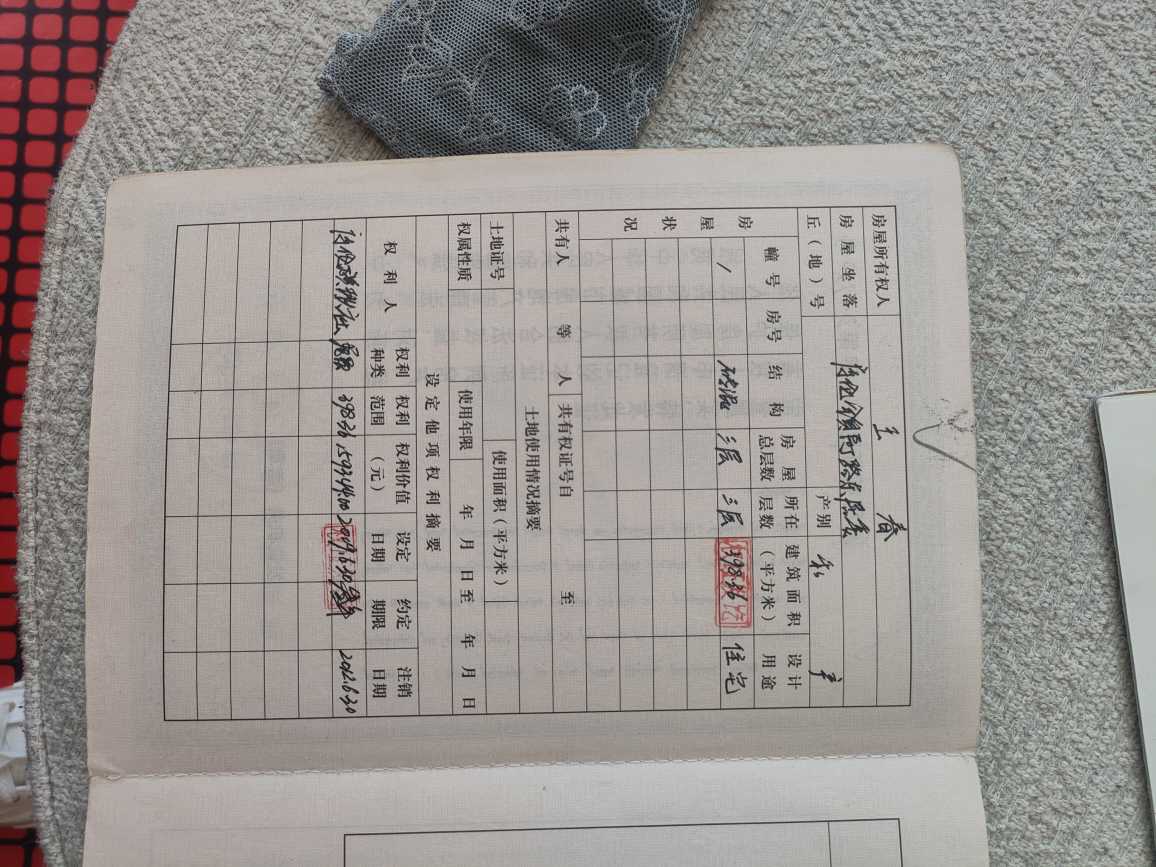 房屋所有权人 王 春
房屋坐落
丘(地)号 产别 私 产
房屋状况
幢号 房号 结构 房屋总层数 所在层数 建筑面积(平方米) 设计用途
1 砖混 三层 三层 398.36 住宅
共有人 等 人 共有权证号自 至
土地使用情况摘要
土地证号 使用面积(平方米)
权属性质 使用年限 年 月 日至 年 月 日
设定他项权利摘要
权利人 权利种类 权利范围 权利价值(元) 设定日期 约定期限 注销日期
398.36 2009.6.30 2012.6.30